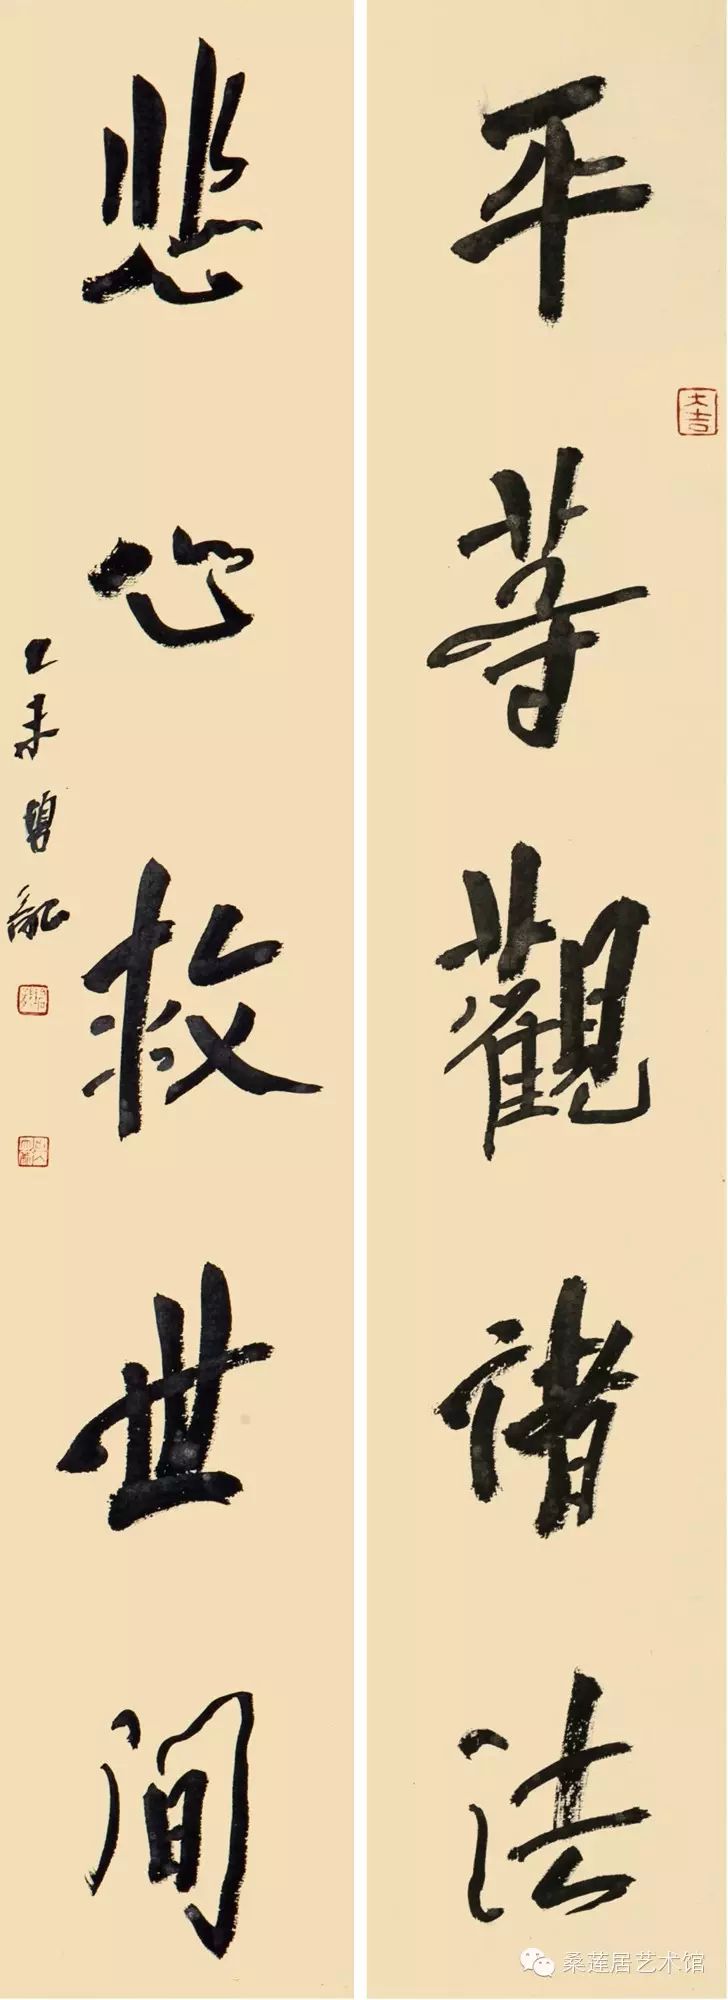 平等觀諸法
大吉
悲心救世間
乙未
桑莲居艺术馆